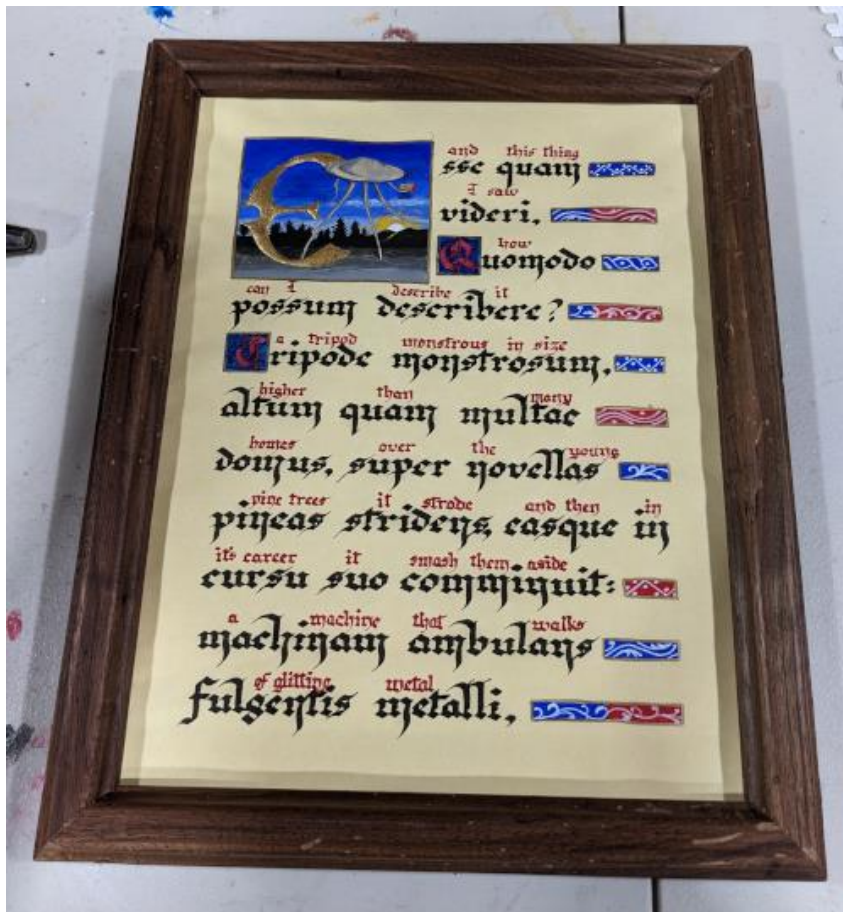 and this thing
Esse quam
I saw
videri.
how
Quomodo
can I describe it
possum describere?
a tripod monstrous in size
Tripode monstrosum,
higher than many
altum quam multae
homes over the young
domus, super novellas
pine trees it strode and then in
pineas stridens, easque in
it's career it smash them aside
cursu suo comminuit:
a machine that walks
machinam ambulans
of glitting metal
fulgentis metalli,